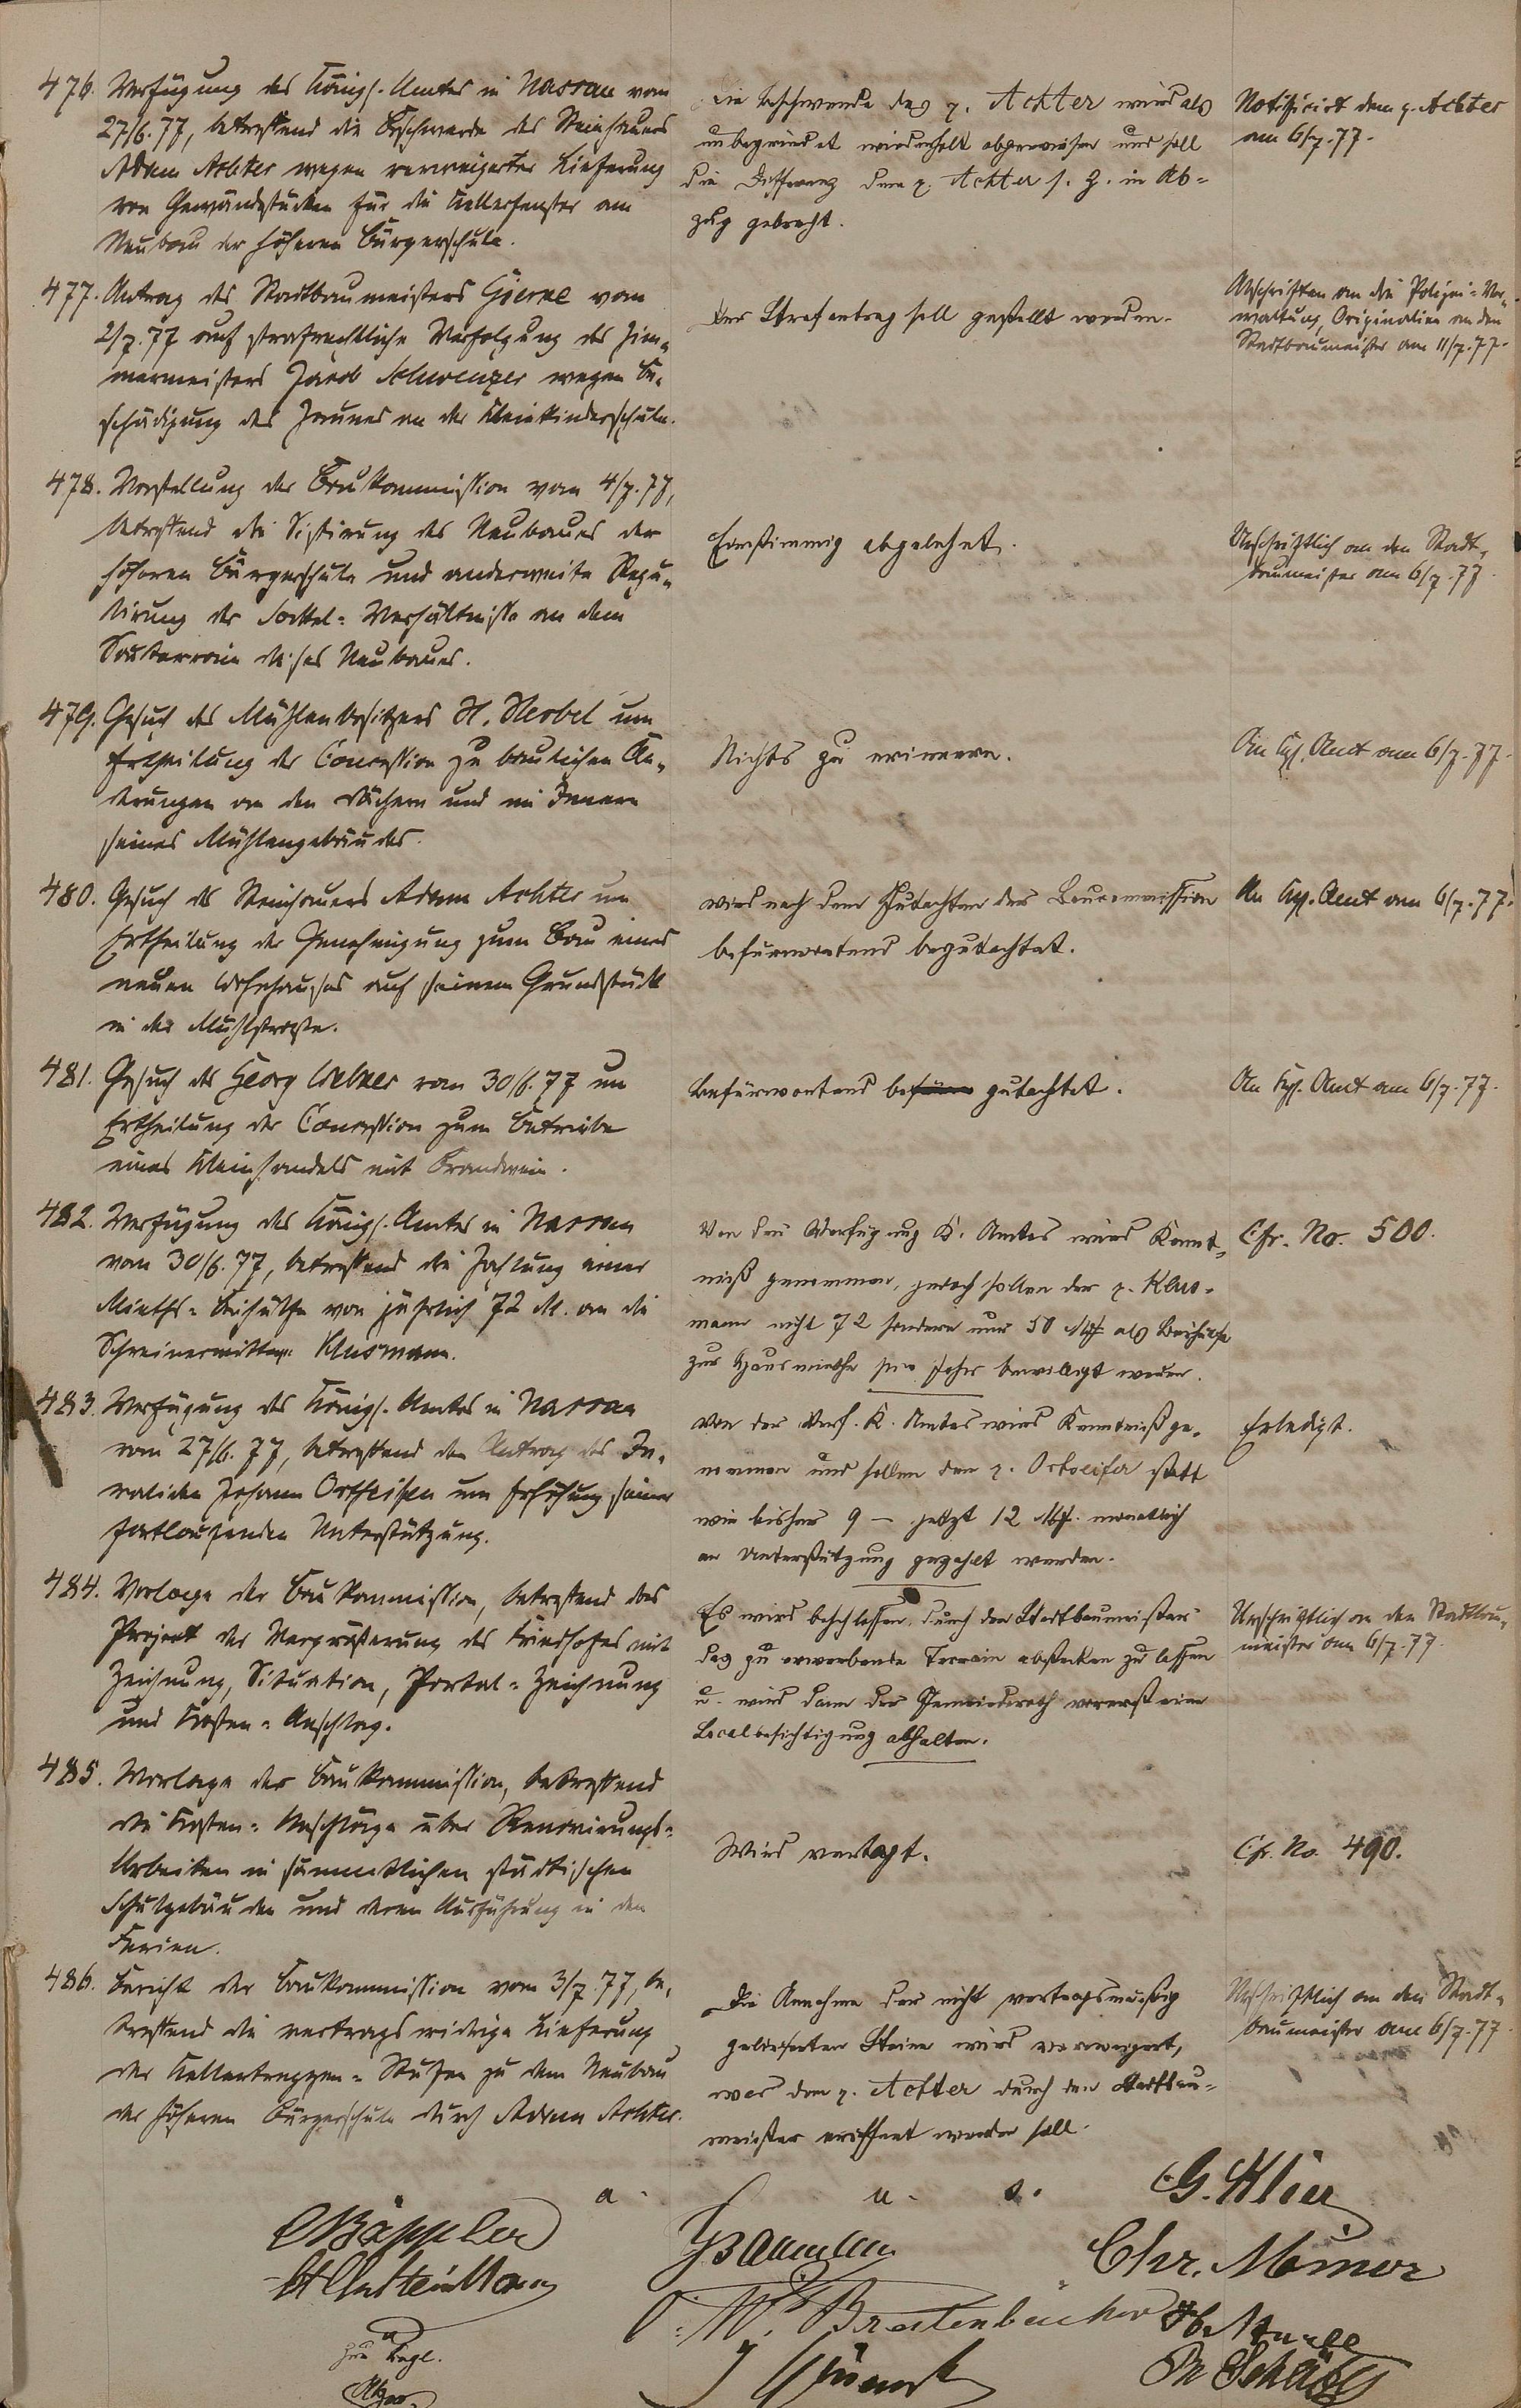 476. Verfügung des Königl. Amtes in Nassau vom
27/6. 77, betreffend die Beschwerde des Steinhauers
Adam Achter wegen verweigerter Lieferung
von Gewändstücken für die Kellerfenster am
Neubau der höheren Bürgerschule.
Die Beschwerde des p. Achter wird als
unbegründet wiederholt abgewiesen und soll
die Differenz dem p. Achter s. Z. in Ab=
zug gebracht.
Notificirt dem p. Achter
am 6/7. 77.
477. Antrag des Stadtbaumeisters Gierke vom
2/7. 77 auf strafrechtliche Verfolgung des Zim=
mermeisters Jacob Schwenzer wegen Be=
schädigung des Zaunes an der Kleinkinderschule.
Der Strafantrag soll gestellt werden.
Abschriften an die Polizei=Ver=
waltung, Originalien an den
Stadtbaumeister am 11/7. 77.
478. Vorstellung der Baukommission vom 4/7. 77,
betreffend die Sistirung des Neubaues der
höheren Bürgerschule und anderweite Regu=
lirung der Sockel=Verhältnisse an dem
Souterrain dieses Neubaues.
Einstimmig abgelehnt.
Urschriftlich an den Stadt=
baumeister am 6/7. 77.
479. Gesuch des Mühlenbesitzers H. Herbel um
Ertheilung der Concession zu baulichen Än=
derungen an den Dächern und im Innern
seines Mühlengebäudes.
Nichts zu erinnern.
An Kgl. Amt am 6/7. 77.
480. Gesuch des Steinhauers Adam Achter um
Ertheilung der Genehmigung zum Bau eines
neuen Wohnhauses auf seinem Grundstück
in der Mühlstraße.
wird nach dem Gutachten der Baucommission
befürwortend begutachtet.
An Kgl. Amt am 6/7. 77.
481. Gesuch des Georg Weber vom 30/6. 77 um
Ertheilung der Concession zum Betriebe
eines Kleinhandels mit Brandwein.
Befürwortend begutachtet.
An Kgl. Amt am 6/7. 77.
482. Verfügung des Königl. Amtes in Nassau
vom 30/6. 77, betreffend die Zahlung einer
Mieths=Beihülfe von jährlich 72 M. an die
Schreinerwittwe Klusmann.
Von der Verfügung K. Amtes wird Kennt=
niß genommen, jedoch sollen der p. Klus=
mann nicht 72 sondern nur 50 Mk als Beihülfe
zur Hausmiethe pro Jahr bewilligt werden.
Cfr. No. 500.
483. Verfügung des Königl. Amtes in Nassau
vom 27/6. 77, betreffend den Antrag des In=
validen Johann Ortseifen um Erhöhung seiner
fortlaufenden Unterstützung.
Von der Verf. K. Amtes wird Kenntniß ge=
nommen und sollen dem p. Ortseifen statt
wie bisher 9 – jetzt 12 Mk. monatlich
an Unterstützung gezahlt werden.
Erledigt.
484. Vorlage der Baukommission, betreffend das
Project der Vergrößerung des Friedhofes mit
Zeichnung, Situation, Portal=Zeichnung
und Kosten=Anschlag.
Es wird beschlossen, durch den Stadtbaumeister
das zu erwerbende Terrain abstecken zu lassen
u. wird dann der Gemeinderath vorerst eine
Localbesichtigung abhalten.
Urschriftlich an den Stadtbau=
meister am 6/7. 77.
485. Vorlage der Baukommission, betreffend
die Kosten=Anschläge über Renovirungs=
Arbeiten in sämmtlichen städtischen
Schulgebäuden und deren Ausführung in den
Ferien.
Wird vertagt.
Cfr. No. 490.
486. Bericht der Baukommission vom 3/7 77, be=
treffend die vertragswidrige Lieferung
der Kellertreppen=Stufen zu dem Neubau
der höheren Bürgerschule durch Adam Achter.
Die Annahme der nicht vertragsmäßig
gelieferten Steine wird verweigert,
was dem p. Achter durch den Stadtbau=
meister eröffnet werden soll.
Urschriftlich an den Stadt=
baumeister am 6/7. 77.
a. u. s.
G. Klier
Chr. Minor
W. Breitenbücher